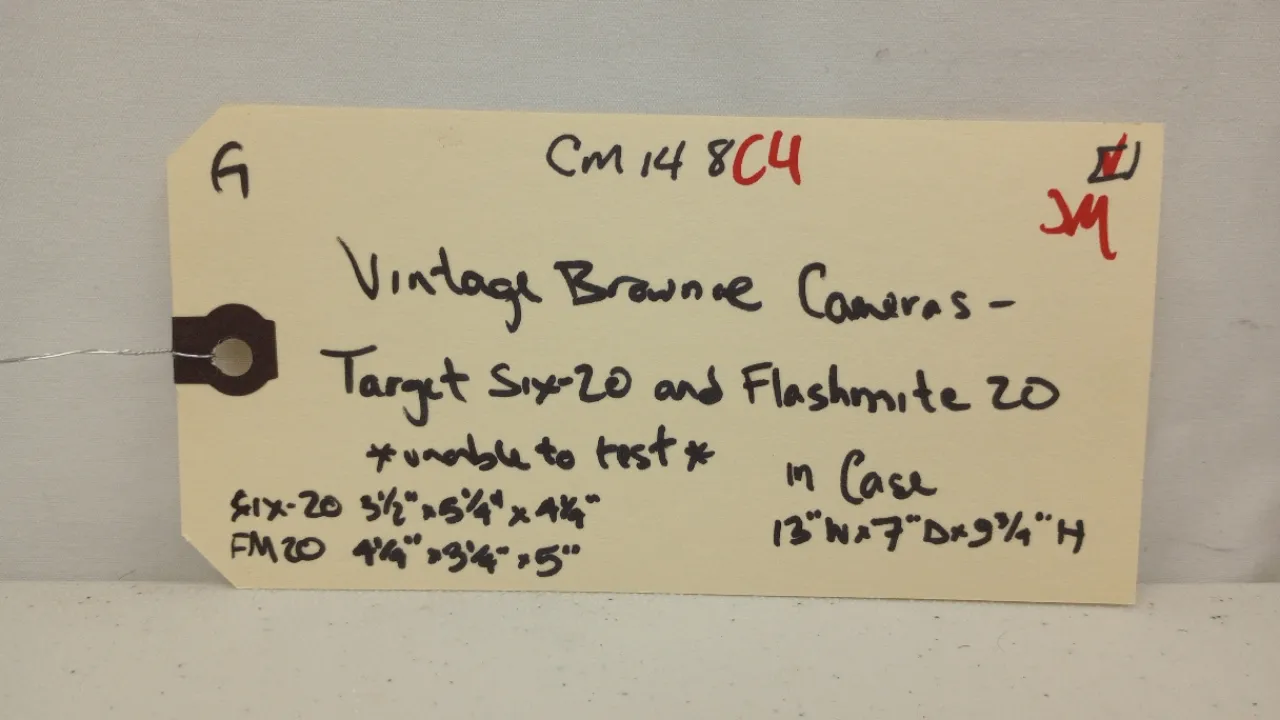 G CM 14 8C4
JM
Vintage Brownie Cameras -
Target Six-20 and Flashmite 20
*unable to test*
in Case
Six-20 3½" x 5¼" x 4¼"
13" W x 7" D x 9¾" H
FM20 4¼" x 3¼" x 5"